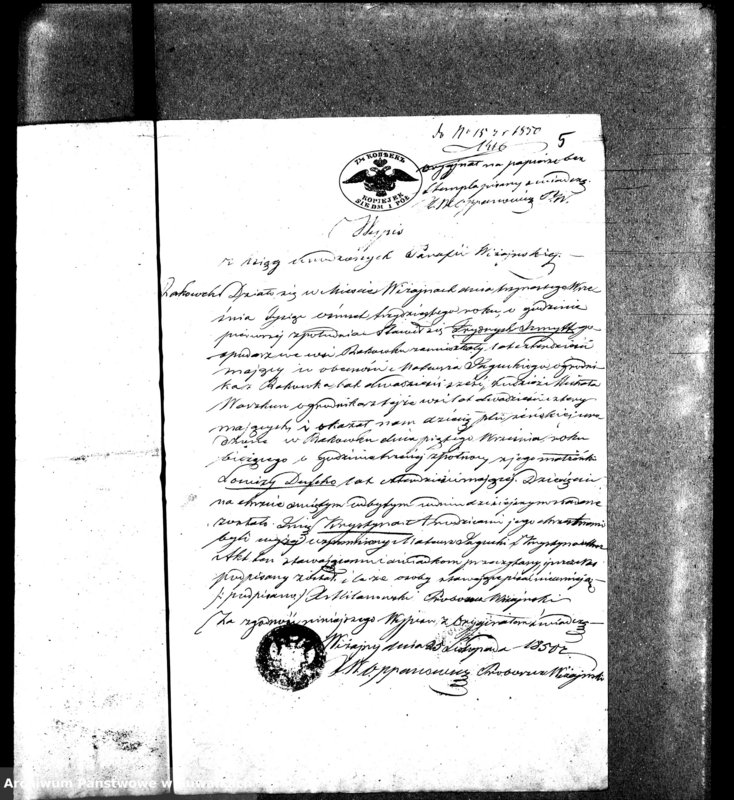 do Nr 15 z r 1850
1416
5
Oryginał na papierze bez
stempla pisany
P.W.
7½ КОПѢЕКЪ
KOPIEJEK
SIEDM I PÓŁ
Wypis
z xiąg urodzonych Parafii Wiżajnskiej. —
Rakowek Działo się w Mieście Wiżajnach dnia trzynastego Wrze-
śnia tysiąc ośmset trzydziestego roku, o godzinie
pierwszej z południa Stawił się Frydrych Szmytt go-
spodarz we wsi Rakowku zamieszkały, lat czterdzieści
mający w obecności Mateusza ogrodni-
ka z Rakowka lat dwadzieścia sześć, tudzież Michała
ogrodnika z tejże wsi lat dwadzieścia cztery
mających, i okazał nam dziecię płci żeńskiej uro-
dzone w Rakowku dnia piątego Września roku
bieżącego o godzinie trzeciej z północy z jego małżonki
Lowizy lat mającej. Dziecięciu
na chrzcie świętym odbytym w dniu dzisiejszym nadane
zostało Imię Krystyna a rodzicami jego chrzestnemi
byli wyżej wspomniony Mateusz i Krystyna
Akt ten stawającemu i świadkom przeczytany przez
podpisany został, i że osoby stawające pisać nieumieją
/: podpisano/ X Proboszcz Wiżajnski
Za zgodność niniejszego Wypisu z Oryginałem zaświadcza
Wiżajny dnia Listopada 1850 r
Proboszcz Wiżajnski
Archiwum Państwowe w